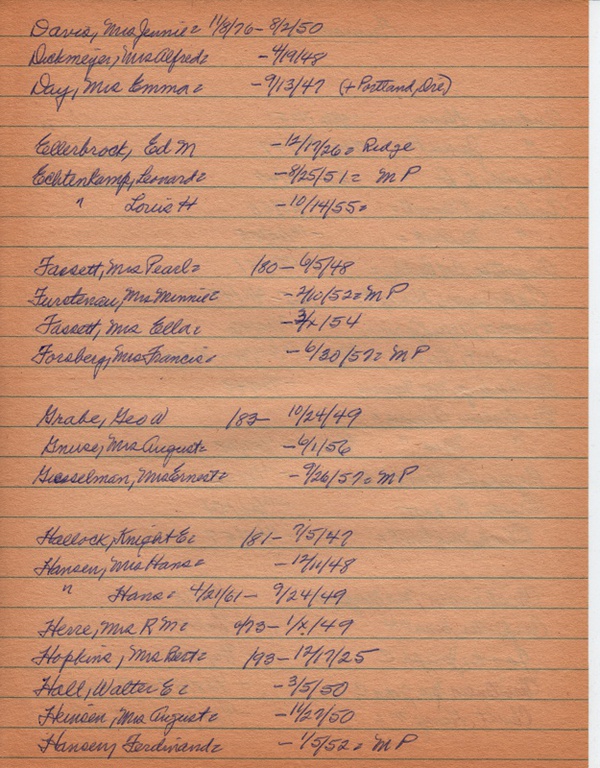 Davis, Mrs Jennie = 11/8/76 - 8/2/50
Dickmeyer, Mrs Alfred = - 4/19/48
Day, Mrs Emma = - 9/13/47 (+ Portland, Ore)
Ellerbrock, Ed M - 12/17/26 = Ridge
Echtenkamp, Leonard = - 8/25/51 = MP
" Louis H - 10/14/55 =
Fassett, Mrs Pearl = 180 - 6/5/48
Furstenau, Mrs Minnie = - 2/10/52 = MP
Fassett, Mrs Ella = - 3/x/54
Forsberg, Mrs Francis = - 6/30/57 = MP
Grabe, Geo W 183 - 10/24/49
Gnuse, Mrs August = - 6/1/56
Giesselman, Mrs Ernest = - 9/26/57 = MP
Hallock, Knight E = 181 - 7/5/47
Hansen, Mrs Hans = - 12/11/48
" Hans = 4/21/61 - 9/24/49
Herre, Mrs R M = - 1/x/49
Hopkins, Mrs Bert = 193 - 12/17/25
Hall, Walter E = - 3/5/50
Heinsen, Mrs August = - 11/27/50
Hansen, Ferdinand = - 1/5/52 = MP